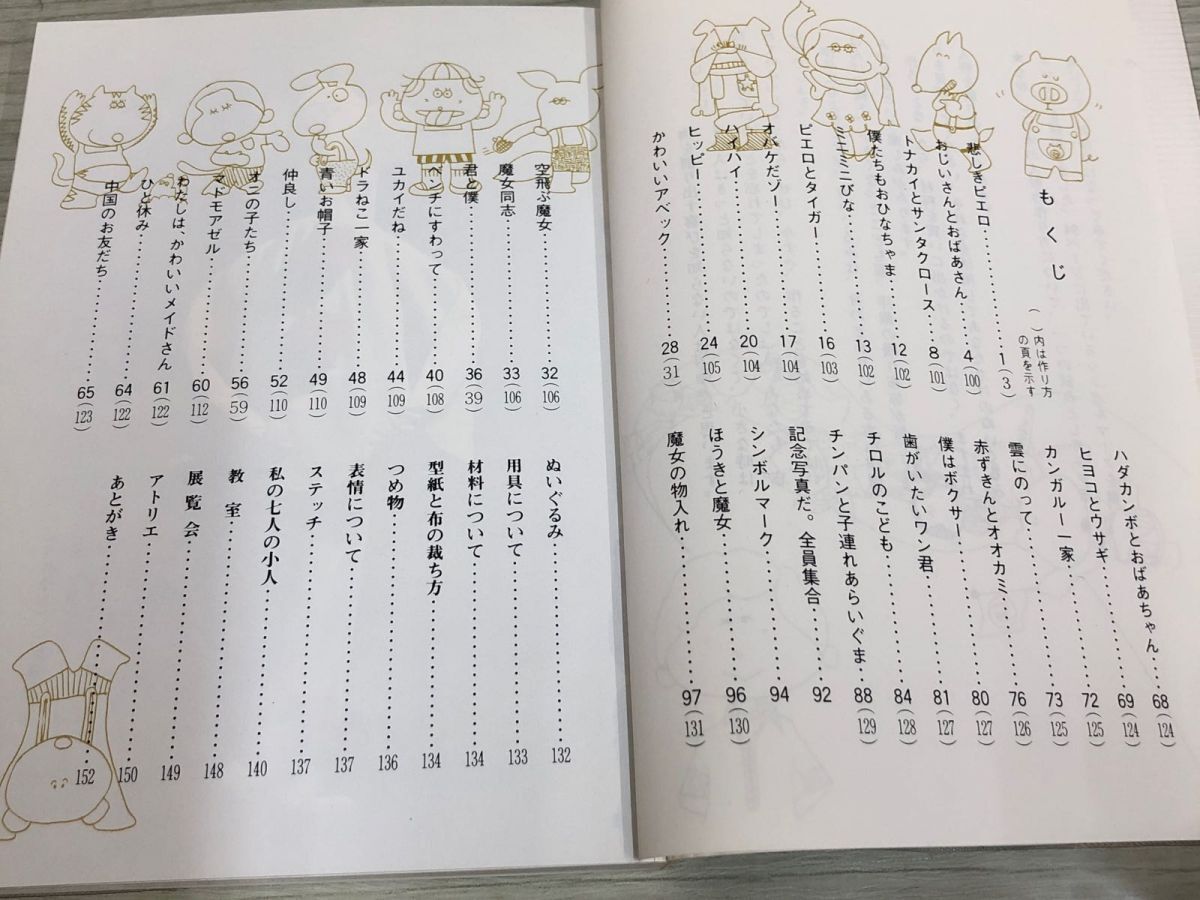 もくじ
（　）内は作り方
の頁を示す
悲しきピエロ……1（3）
おじいさんとおばあさん……4（100）
トナカイとサンタクロース……8（101）
僕たちもおひなちゃま……12（102）
ミニミニびな……13（102）
ピエロとタイガー……16（103）
オバケだゾー……17（104）
ハイハイ……20（104）
ヒッピー……24（105）
かわいいアベック……28（31）
空飛ぶ魔女……32（106）
魔女同志……33（106）
君と僕……36（39）
ベンチにすわって……40（108）
ユカイだね……44（109）
ドラねこ一家……48（109）
青いお帽子……49（110）
仲良し……52（110）
オニの子たち……56（59）
マドモアゼル……60（112）
わたしは、かわいいメイドさん……61（122）
ひと休み……64（122）
中国のお友だち……65（123）
ハダカンボとおばあちゃん……68（124）
ヒヨコとウサギ……69（124）
カンガルー一家……72（125）
雲にのって……73（125）
赤ずきんとオオカミ……76（126）
僕はボクサー……80（127）
歯がいたいワン君……81（127）
チロルのこども……84（128）
チンパンと子連れあらいぐま……88（129）
記念写真だ。全員集合……92
シンボルマーク……94
ほうきと魔女……96（130）
魔女の物入れ……97（131）
ぬいぐるみ……132
用具について……133
材料について……134
型紙と布の裁ち方……134
つめ物……136
表情について……137
ステッチ……137
私の七人の小人……140
教室……148
展覧会……149
アトリエ……150
あとがき……152